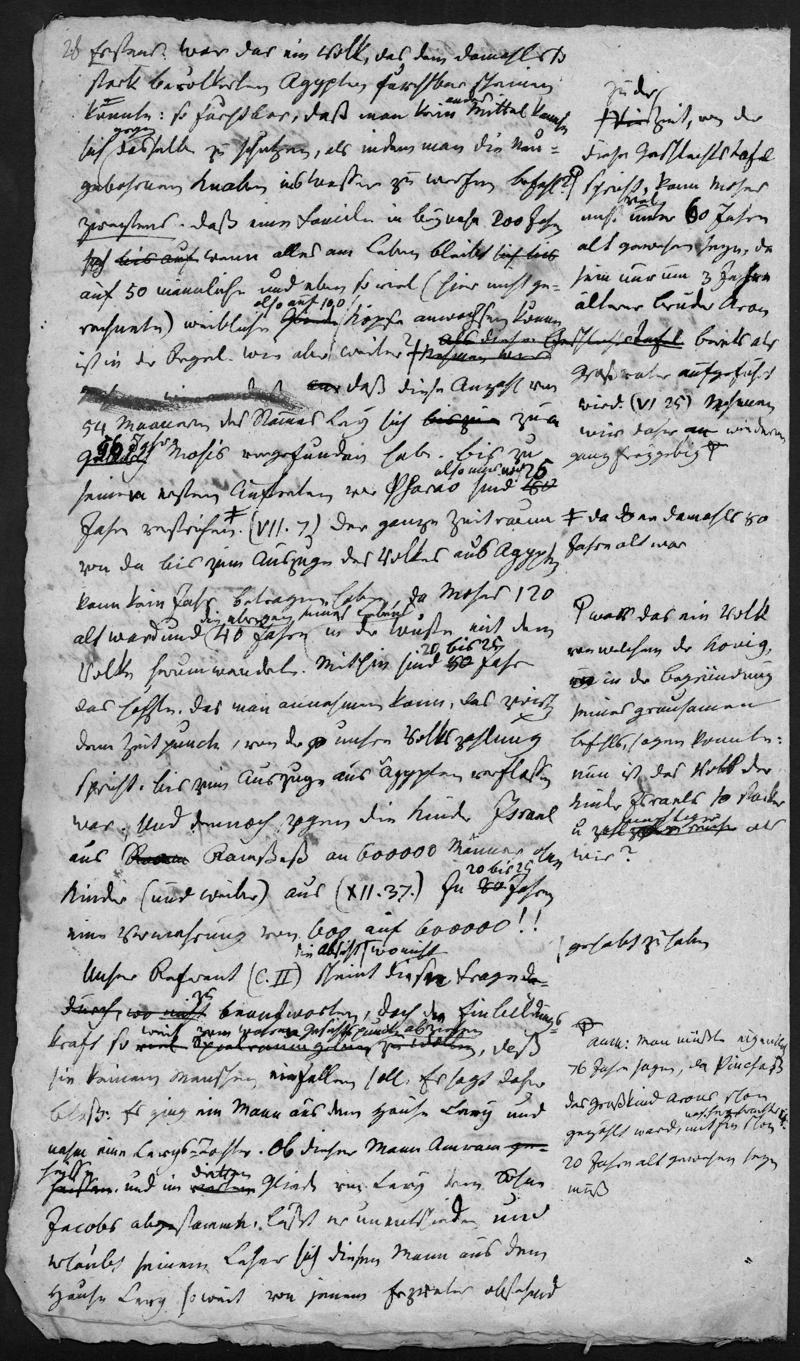 28 Erstens. War das ein Volk, das dem damahls so
stark bevölkerten Ägypten furchtbar scheinen
konnte: so furchtbar, daß man kein andres Mittel kannte
sich gegen dasselbe zu schützen, als indem man die neu=
gebohrenen Knaben ins Wasser zu werfen befahl?
zweytens. daß eine Familie in beynahe 200 Jahren
sich bis auf wenn alles am Leben bleibt sich bis
auf 50 männliche und eben so viel (hier nicht ge-
rechnete) weibliche also auf 100 Köpfe anwachsen könne
ist in der Regel. Wie aber weiter? Nehmen wir
daß diese Anzahl von
54 Männern des Stammes Levy sich bis zum
56 Jahre Mosis vorgefunden habe. bis zu
seinem ersten Auftreten vor Pharao sind also nur noch 25
Jahre verstrichen. (VII. 7) Der ganze Zeitraum
von da bis zum Auszuge des Volkes aus Ägypten
kann kein Jahr betragen haben, da Moses 120
alt ward und die übrigen seines Lebens 40 Jahre in der Wüsten mit dem
Volke herumwandelte. Mithin sind 20 bis 25 Jahre
das höchste, das man annehmen kann, das zwischen
dem Zeitpunckt, von der unsre Volkszählung
spricht, bis zum Auszuge aus Ägypten verflossen
war. Und dennoch zogen die Kinder Israel
aus Raemses an 600000 Männer ohne
Kinder (und Weiber) aus (XII. 37.) In 20 bis 25 Jahren
eine Vermehrung von 600 auf 600000!!
Unser Referent (C. II) scheint die Absicht, wo nicht diese Frage
durch, wo nicht zu beantworten, doch die Einbildungs-
kraft so weit vom wahren Gesichtspunckt abziehen, daß
sie keinem Menschen einfallen soll. Er sagt daher
bloß: Es ging ein Mann aus dem Hause Levy und
nahm eine Levys-Tochter. Ob dieser Mann Amram ge-
heissen und im dritten Gliede von Levy dem Sohn
Jacobs abgestammt, läßt er unentschieden und
erlaubt seinem Leser sich diesen Mann aus dem
Hause Levy so weit von jenem Erzvater abstehend
Zu der
Zeit, von der
diese Geschlechtstafel
spricht, kann Moses
nicht viel unter 60 Jahren
alt gewesen seyn, da
sein nur um 3 Jahre
älterer Bruder Aron
als dieser Geschlechtstafel bereits als
Großvater aufgeführt
wird. (VI 25) Nehmen
wir daher an wiederum
ganz freygebig
‡ da er damahls 80
Jahre alt war
war das ein Volk
von welchem der König,
in der Begründung
seines grausamen
Befehls, sagen konnte:
nun ist das Volk der
Kinder Israels so starker
u zahl als
wir?
gehabt zu haben
Anm: man müßte eigentlich
76 Jahre sagen, da Pinehas
das Großkind Arons schon
gezählt ward, mithin schon
20 Jahre alt gewesen seyn
muß